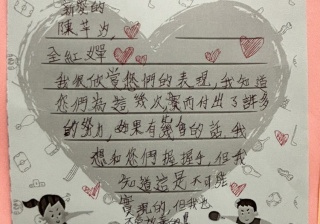 親愛的
陳芊汐,
全紅嬋
我很欣賞您們的表現,我知道
您們為這幾次賽而付出了許多
的努力,如果有機會的話,我
想和您們握握手,但我
知道這是不可能
實現的,但我也